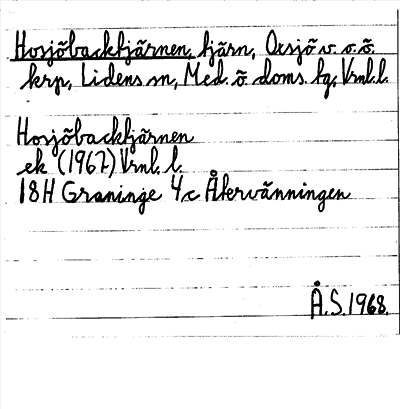 Hosjöbacktjärnen, tjärn, Oxsjö v. o. ö.
krp, Lidens sn, Med. ö. doms. tg, Vrnl. l.
Hosjöbacktjärnen
ek (1967) Vrnl. l.
18H Graninge 4c Åkervänningen
Å.S. 1968.